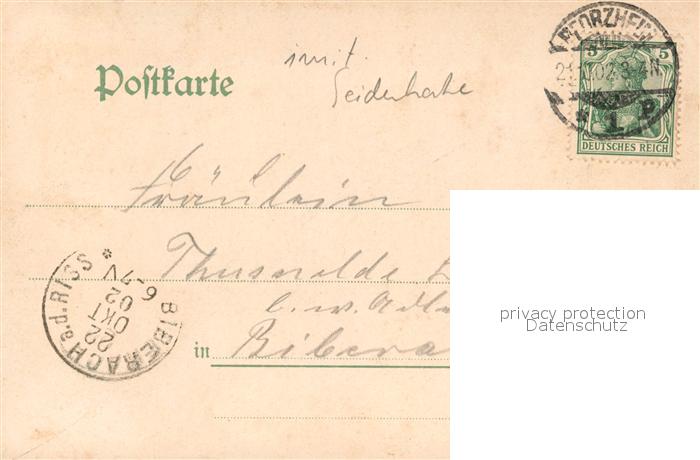 Postkarte
imit.
Seidenkarte
PFORZHEIM
5 5
* 1 P
DEUTSCHES REICH
Fräulein
Thusnelde
BIBERACH a.d. RISS *
22
OKT
02
6-7V
in Bibera
privacy protection
Datenschutz